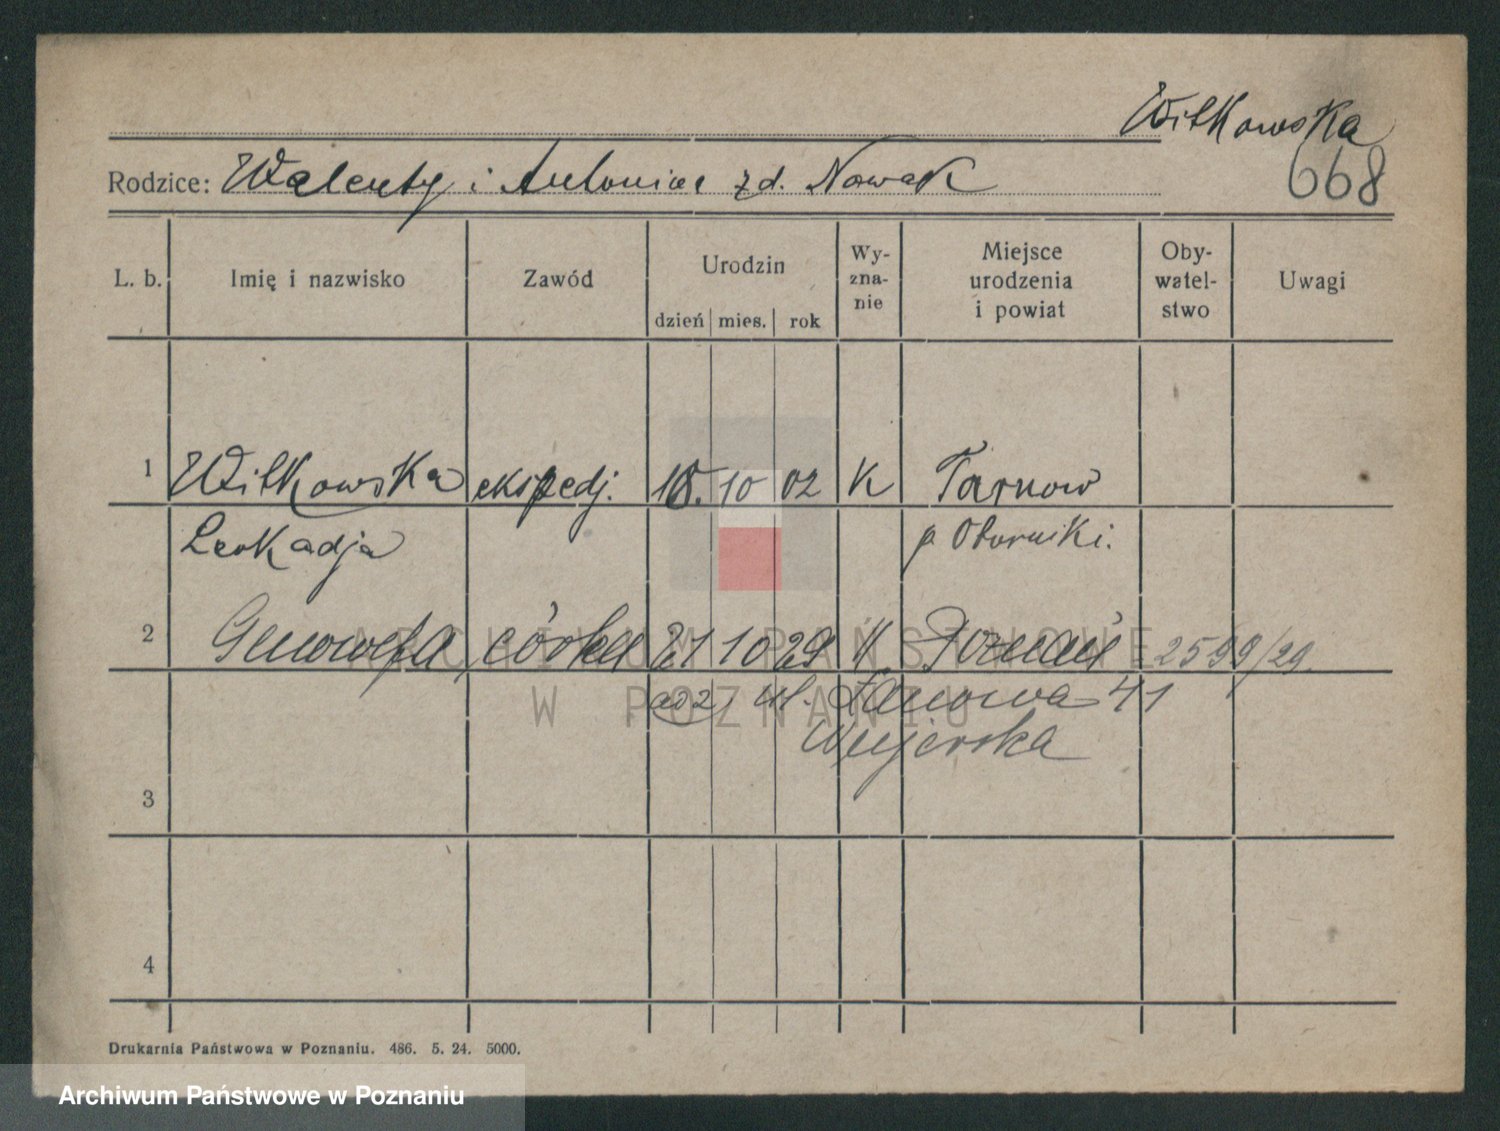 Witkowska
Rodzice: Walenty i Antonina zd. Nowak
668
L. b. Imię i nazwisko Zawód Urodzin dzień mies. rok Wy-zna-nie Miejsce urodzenia i powiat Oby-watel-stwo Uwagi
1 Witkowska ekspedj. 10 02 K Tarnow
Leokadja p. Oborniki.
2 Genowefa córka 21 10 29 K Poznań 2599/29.
ad 2, ul. 41
3
4
ARCHIWUM PAŃSTWOWE
W POZNANIU
Drukarnia Państwowa w Poznaniu. 486. 5. 24. 5000.
Archiwum Państwowe w Poznaniu